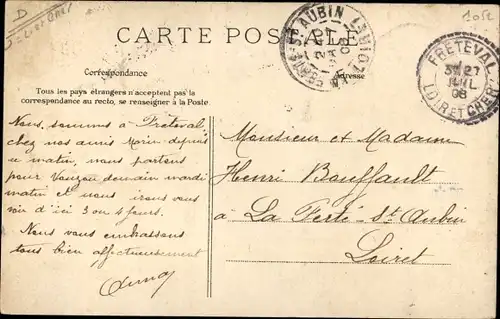 CARTE POSTALE
Correspondance
Adresse
Tous les pays étrangers n'acceptent pas la
correspondance au recto, se renseigner à la Poste.
FRETEVAL
27
JUIL
08
LOIR ET CHER
ST AUBIN
LOIRET
Nous sommes à Fréteval
chez nos amis Morin depuis
ce matin, nous partons
pour Vouzon demain mardi
matin et nous irons vous
voir d'ici 3 ou 4 jours.
Nous vous embrassons
tous bien affectueusement
Monsieur et Madame
Henri Bouffault
à La Ferté-St-Aubin
Loiret